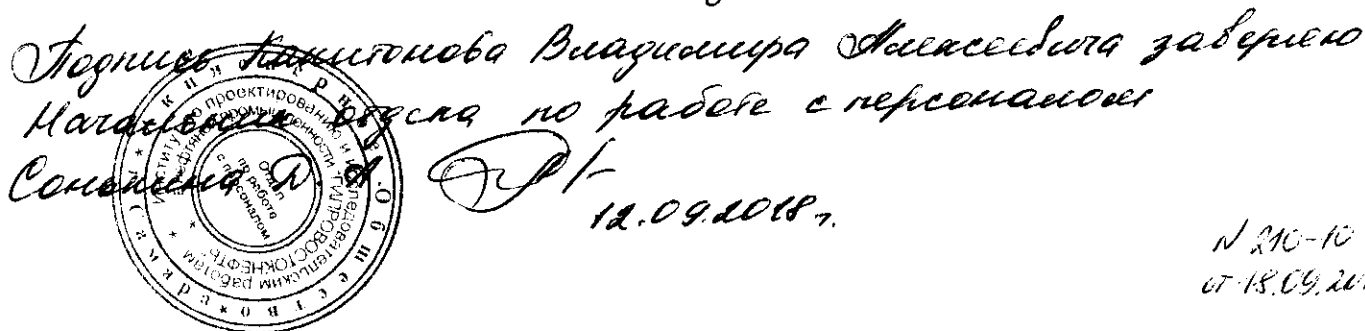 Подпись Капитонова Владимира Алексеевича заверяю
Начальник отдела по работе с персоналом
Д. А.
12.09.2018 г.
N 210-10
от 18.09.20
Общество
Институт по проектированию и исследовательским работам
в нефтяной промышленности "ГИПРОВОСТОКНЕФТЬ"
Отдел
по работе
с персоналом